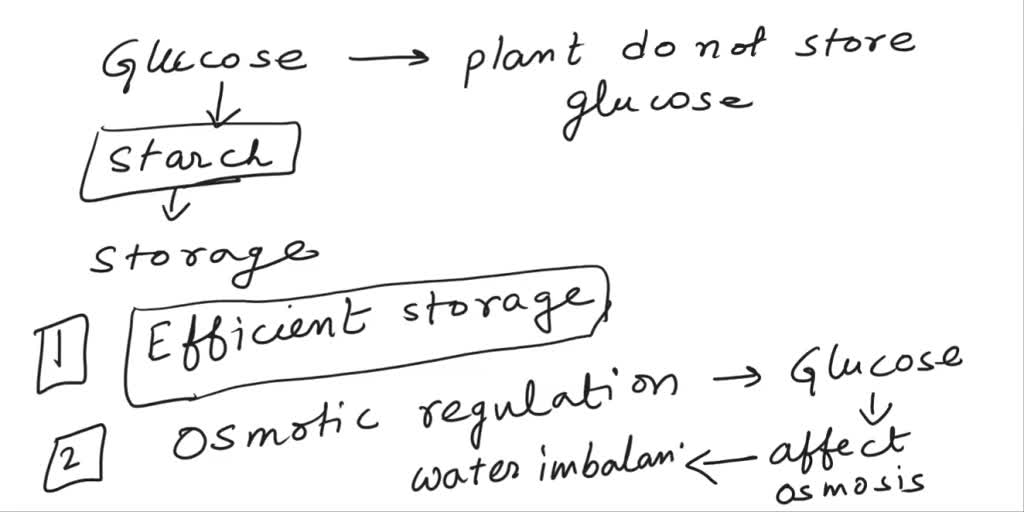 Glucose → plant do not store
glucose
starch
storage
1 Efficient storage
2 Osmotic regulation → Glucose
water imbalan ← affect
osmosis